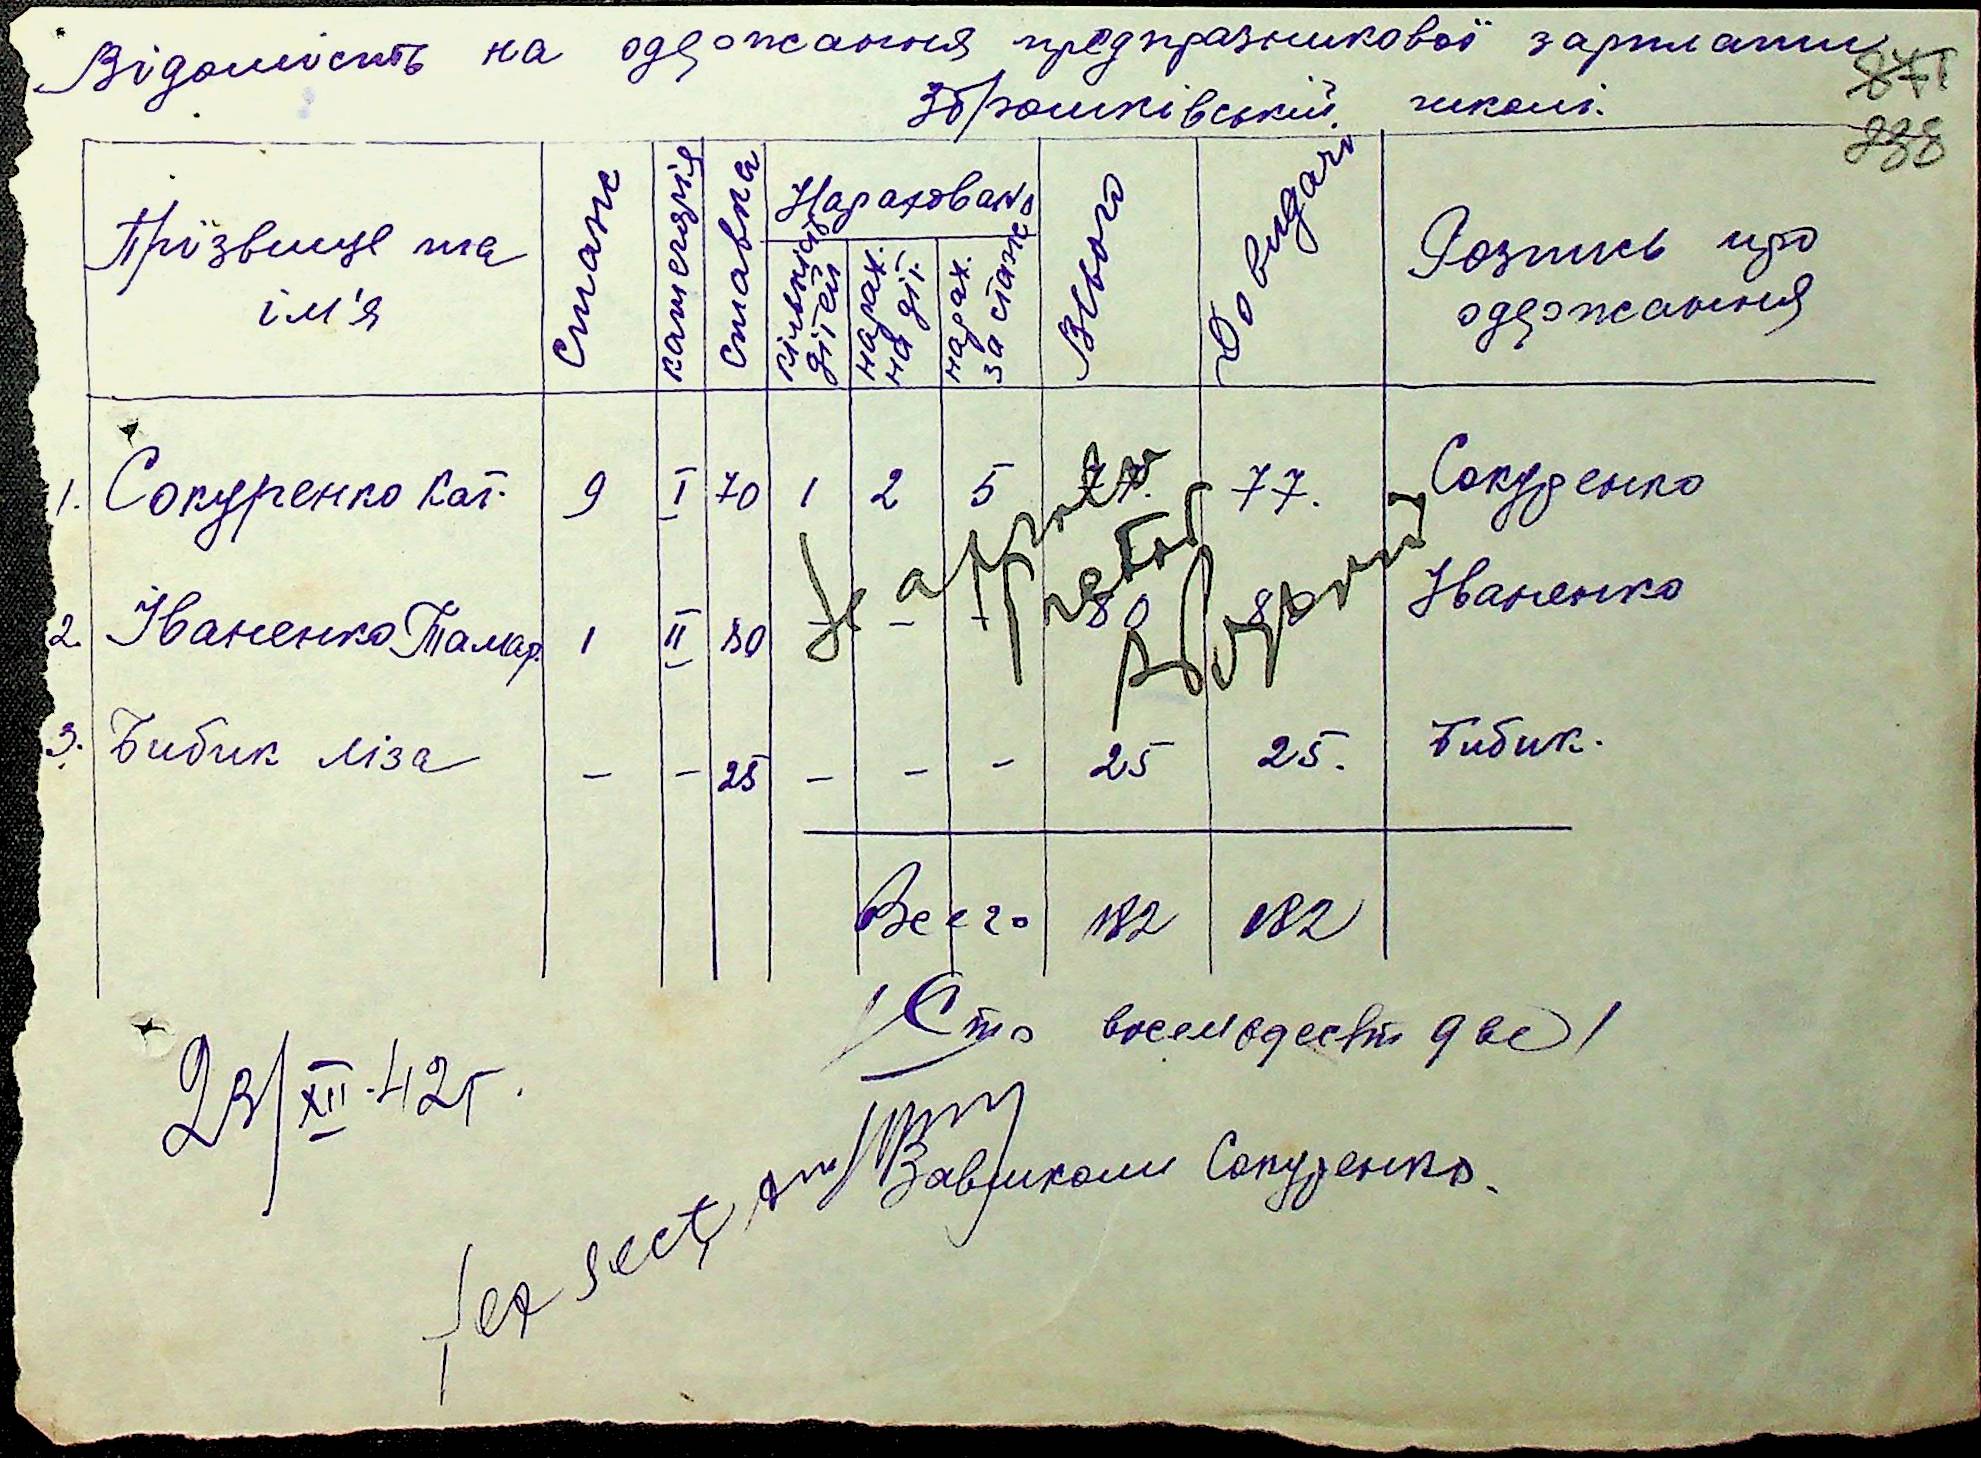 Відомость на одержання предпразникової зарплати
Зброшківській школі.
871
238
Прізвище та ім'я
Стаж
категорія
Ставка
Нараховано
кількість дітей
нарах. на діт.
нарах. за стаж
Всього
До видачи
Розпись про одержання
1. Сокуренко Кат. 9 I 70 1 2 5 77. 77. Сокуренко
2. Іваненко Тамар. 1 II 80 - - - 80 80 Іваненко
3. Бибик Ліза - - 25 - - - 25 25. Бибик.
Всего 182 182
/Сто восемьдесят две/
23/XII-42 г.
Завшколи Сокуренко.